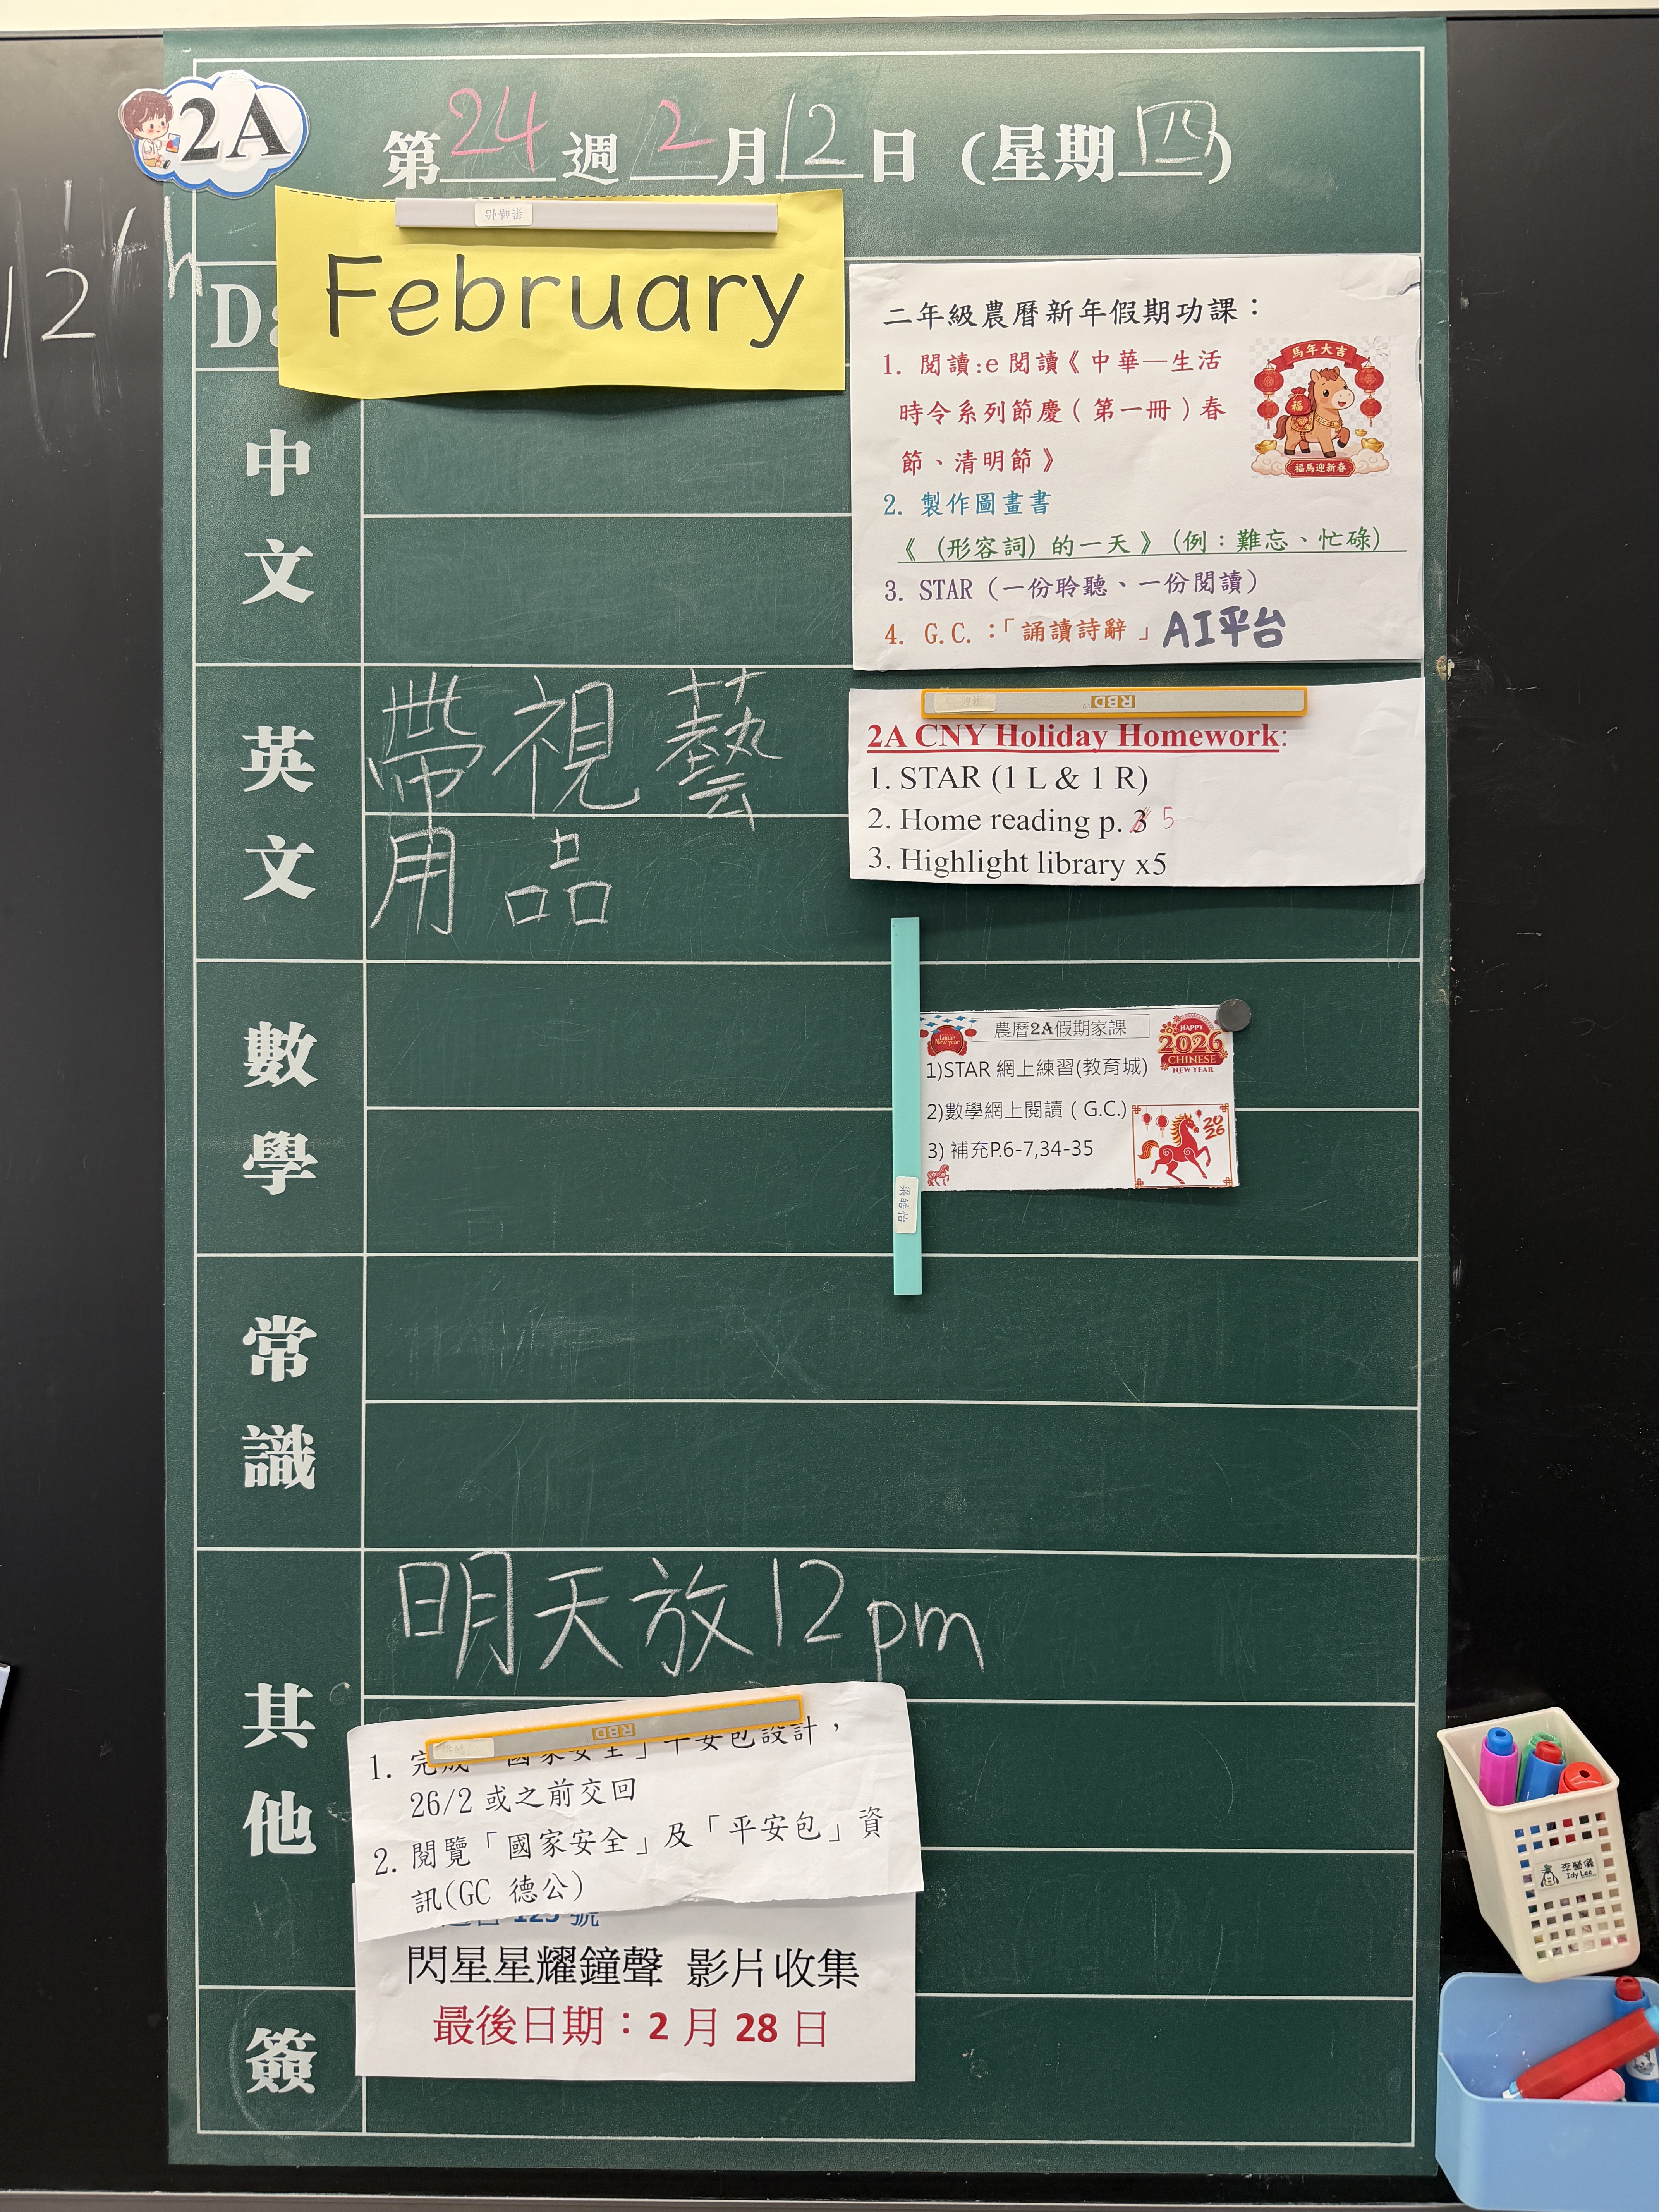 2A
第24週2月12日(星期四)
12th
February
Da
中文
英文
數學
常識
其他
簽
二年級農曆新年假期功課：
馬年大吉
福
福馬迎新春
1. 閱讀:e 閱讀《中華—生活
時令系列節慶(第一冊)春
節、清明節》
2. 製作圖畫書
《 (形容詞) 的一天》(例：難忘、忙碌)
3. STAR (一份聆聽、一份閱讀)
4. G.C.：「誦讀詩辭」AI平台
帶視藝
用品
RBD
2A CNY Holiday Homework:
1. STAR (1 L & 1 R)
2. Home reading p. 3 5
3. Highlight library x5
Lunar
New year
農曆2A假期家課
HAPPY
2026
CHINESE
NEW YEAR
1)STAR 網上練習(教育城)
2)數學網上閱讀（G.C.)
3) 補充P.6-7,34-35
2026
梁皓怡
明天放12pm
RBD
1. 完成「國家安全」平安包設計，
26/2 或之前交回
2. 閱覽「國家安全」及「平安包」資
訊(GC 德公)
123 號
閃星星耀鐘聲 影片收集
最後日期：2 月 28 日
Idy Lee